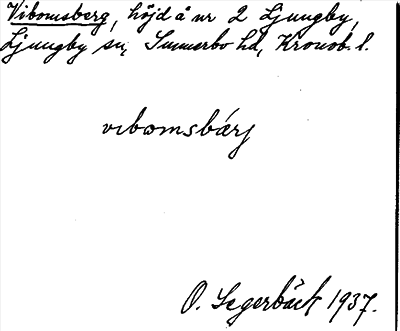 Vibomsberg, höjd å nr 2 Ljungby,
Ljungby sn, Sunnerbo hd, Kronob. l.
vibomsbärj
O. Segerbäck 1937.